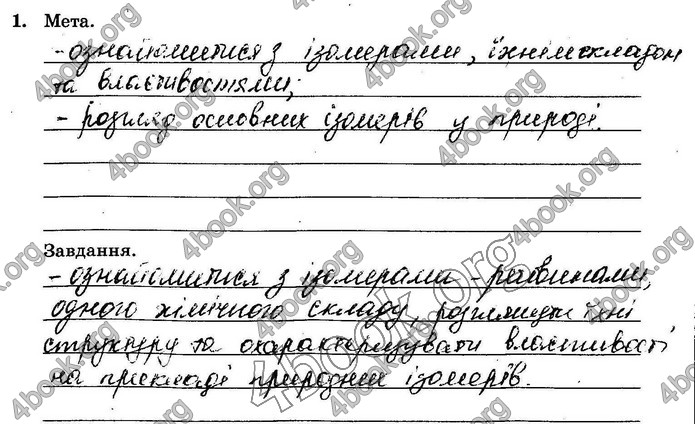 1. Мета.
- ознайомитися з ізомерами, їхнім складом
та властивостями;
- розгляд основних ізомерів у природі.
Завдання.
- ознайомитися з ізомерами речовинами,
одного хімічного складу, розглянути їхні
структуру та охарактеризувати властивості
на прикладі природних ізомерів.
4book.org